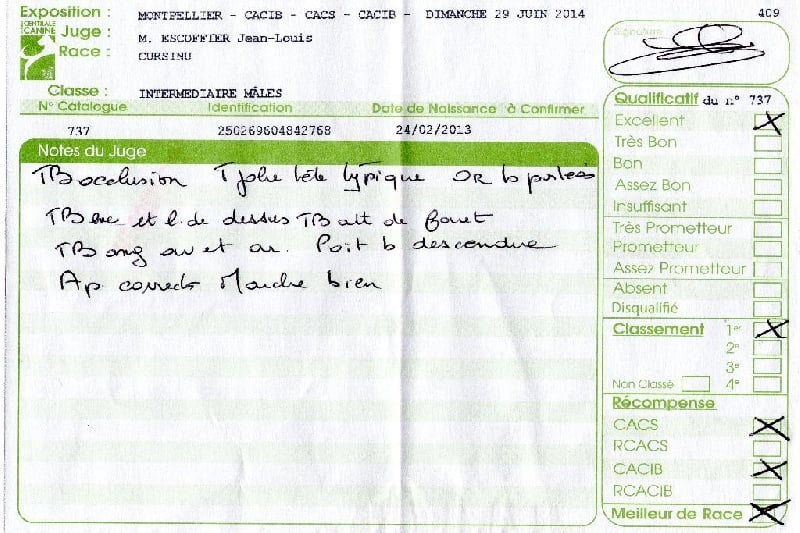 Exposition : MONTPELLIER - CACIB - CACS - CACIB - DIMANCHE 29 JUIN 2014 409
CENTRALE CANINE
Juge : M. ESCOFFIER Jean-Louis
Race : CURSINU
Classe : INTERMEDIAIRE MÂLES
N° Catalogue Identification Date de Naissance à Confirmer
737 250269604842768 24/02/2013
Notes du Juge
TB occlusion T jolie tête typique OR b portées
TB exc et l. de dessus TB att de fouet
TB ang av et ar. Poit b descendue
Ap corrects Marche bien
Signature
Qualificatif du n° 737
Excellent X
Très Bon
Bon
Assez Bon
Insuffisant
Très Prometteur
Prometteur
Assez Prometteur
Absent
Disqualifié
Classement 1er X
2e
3e
Non Classé 4e
Récompense
CACS X
RCACS
CACIB X
RCACIB
Meilleur de Race X